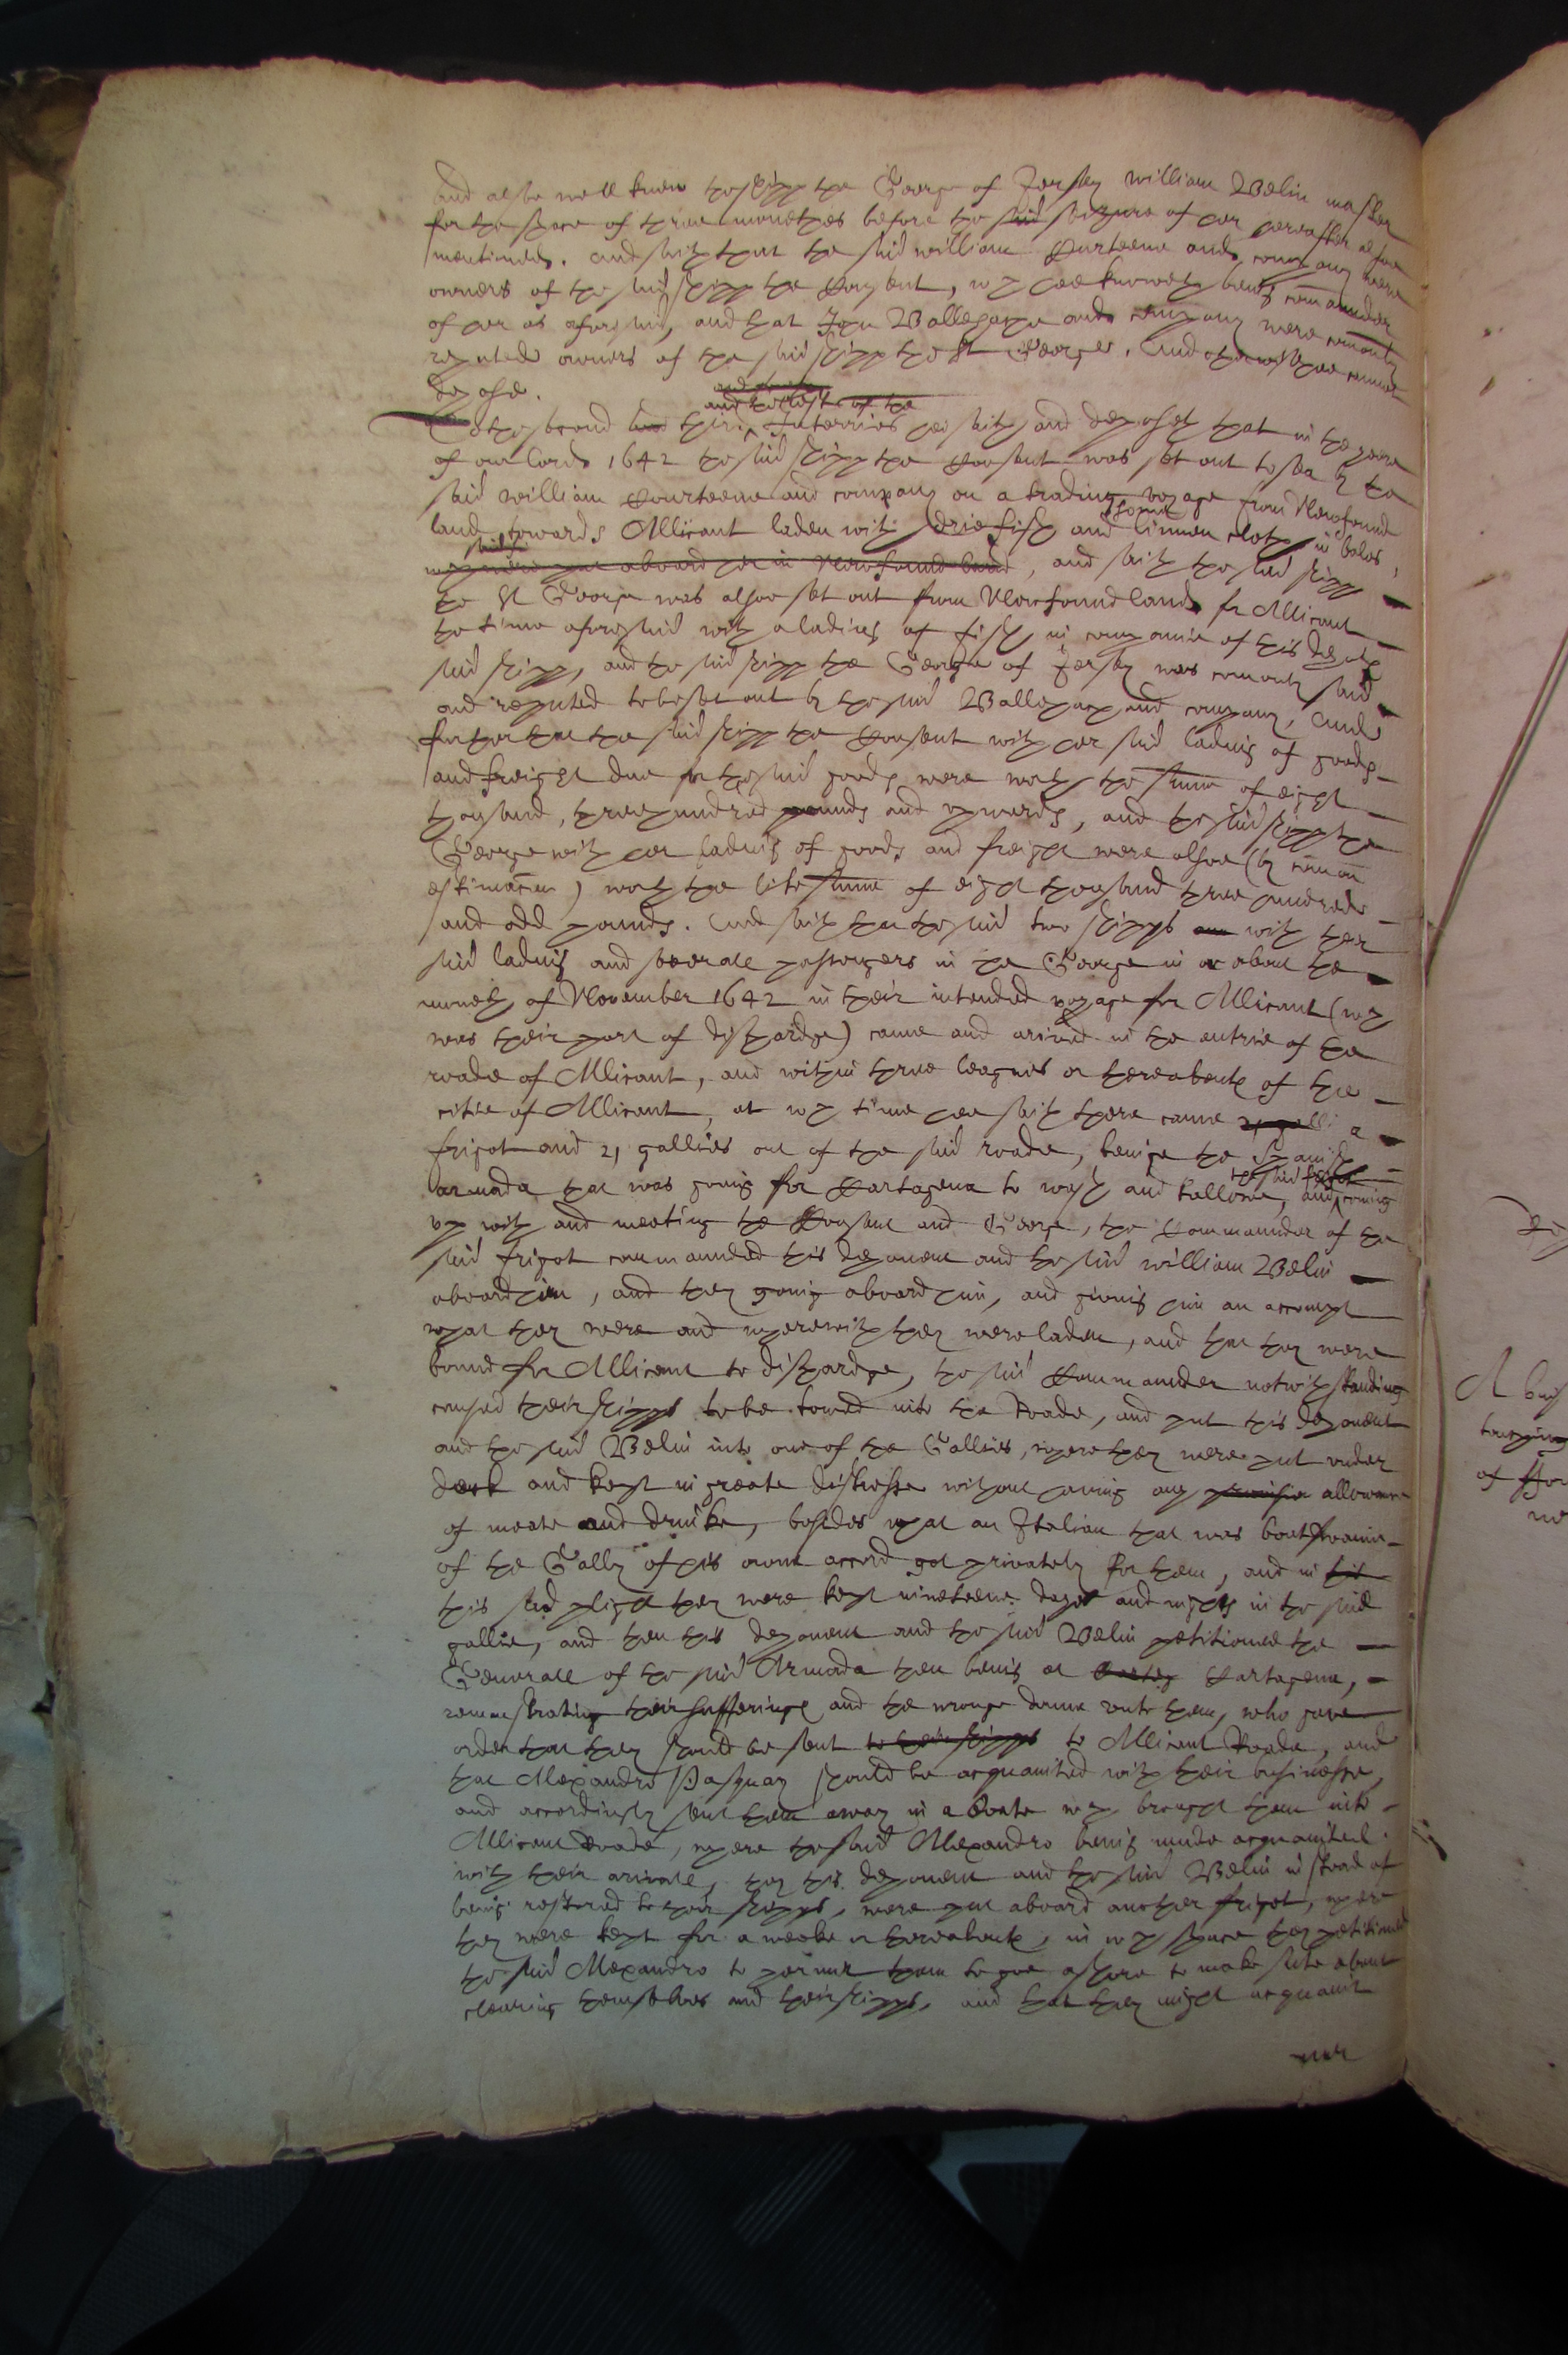 and alsoe well knew the shipp the George of Jersey William Belin master
for the space of three monethes before the said seizure of her hereafter alsoe
mentioned. and saith that the said William Courteene and company were
owners of the said shipp the Consent, wch hee knoweth being commander
of her as aforesaid, and that John Ballehache and company were comonly
reputed owners of the said shipp the St George. And otherwise hee cannot
depose.
and the rest of the
To the second and third Interries hee saith and deposeth that in the yeare
of our Lord 1642 the said shipp the Consent was set out to sea by the
said William Courteene and company on a trading voyage from Newfound
some
land towards Allicant laden with drie fish and linnen cloth in bales,
wch were put aboard her in Newfound land, and saith the said shipp
the St George was alsoe set out from Newfound land for Allicant
the time aforesaid with a lading of fish, in companie of this deponts
said shipp, and the said shipp the George of Jersey was comonly said
and reputed to be set out by the said Ballehach and company, And
further that the said shipp the Consent with her said lading of goods
and freight due for the said goods were worth the summe of eight
thousand, three hundred pounds and upwards, and the said shipp the
George with her lading of goods and freight were alsoe (by comon
estimacon) worth the like summe of eight thousand three hundred
and odd pounds. And saith that the said two shipps with their
said lading and severall passengers in the George in or about the
moneth of November 1642 in their intended voyage for Allicant (wch
was their port of discharge) came and arived in the entrie of the
roade of Allicant, and within three leagues or thereabouts of the
citie of Allicant, at wch time hee saith there came 21 galli a
frigot and 21 gallies out of the said roade, being the Spanish
the said frigot
armada that was going for Cartagena to wash and tallowe, and coming
up with and meeting the Consent and George, the Commaunder of the
said frigot commaunded this deponent and the said William Belin
aboard him, and they going aboard him, and giving him an accompt
what they were and wherewith they were laden, and that they were
bound for Allicant to discharge, the said Commaunder notwithstanding
caused their shipps to be towed into the Roade, and put this deponent
and the said Belin into one of the Gallies, where they were put under
deck and kept in greate distresse without having any provision allowance
of meate and drinke, besides what an Italian that was boatswaine
of the Gally of his owne accord got privately for them, and in
this sad plight they were kept nineteene dayes and nights in the said
gallie, and then this deponent and the said Belin petitioned the
Generall of the said Armada then being at Cartagena,
remonstrating their sufferings and the wronge donne unto them, who gave
order that they should be sent to their shipps to Allicant Roade, and
that Alexandro Pasquay should be acquainted with their businesse,
and accordingly sent them away in a boate wch brought them into
Allicant Roade, where the said Alexandro being made acquainted
with their arivall, they this deponent and the said Belin in stead of
being restored to their shipps, were put aboard another frigot, where
they were kept for a weeke or thereabouts, in wch space they petitioned
the said Alexandro to permit them to goe ashore to make suite about
clearing themselves and their shipps, and that they might acquaint